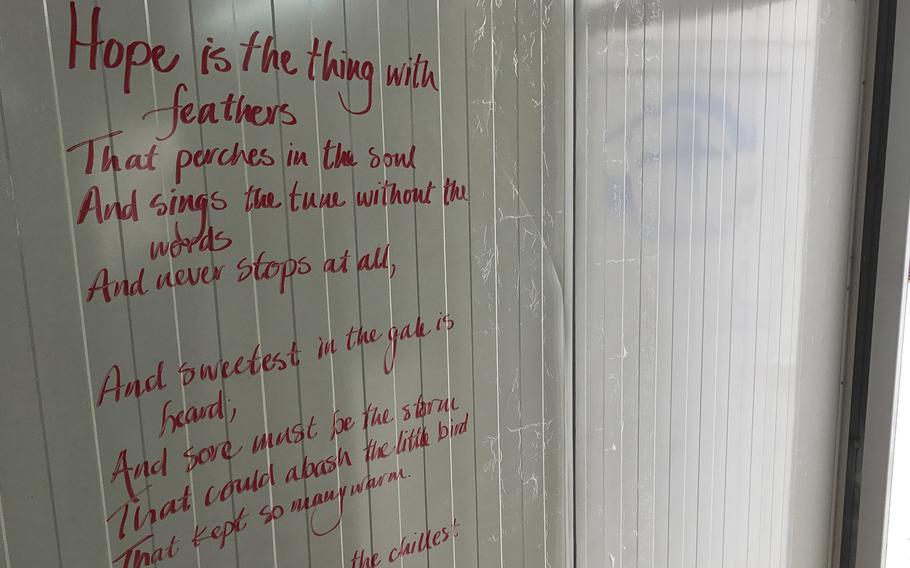 Hope is the thing with
feathers
That perches in the soul
And sings the tune without the
words
And never stops at all,
And sweetest in the gale is
heard;
And sore must be the storm
That could abash the little bird
That kept so many warm.
the chillest